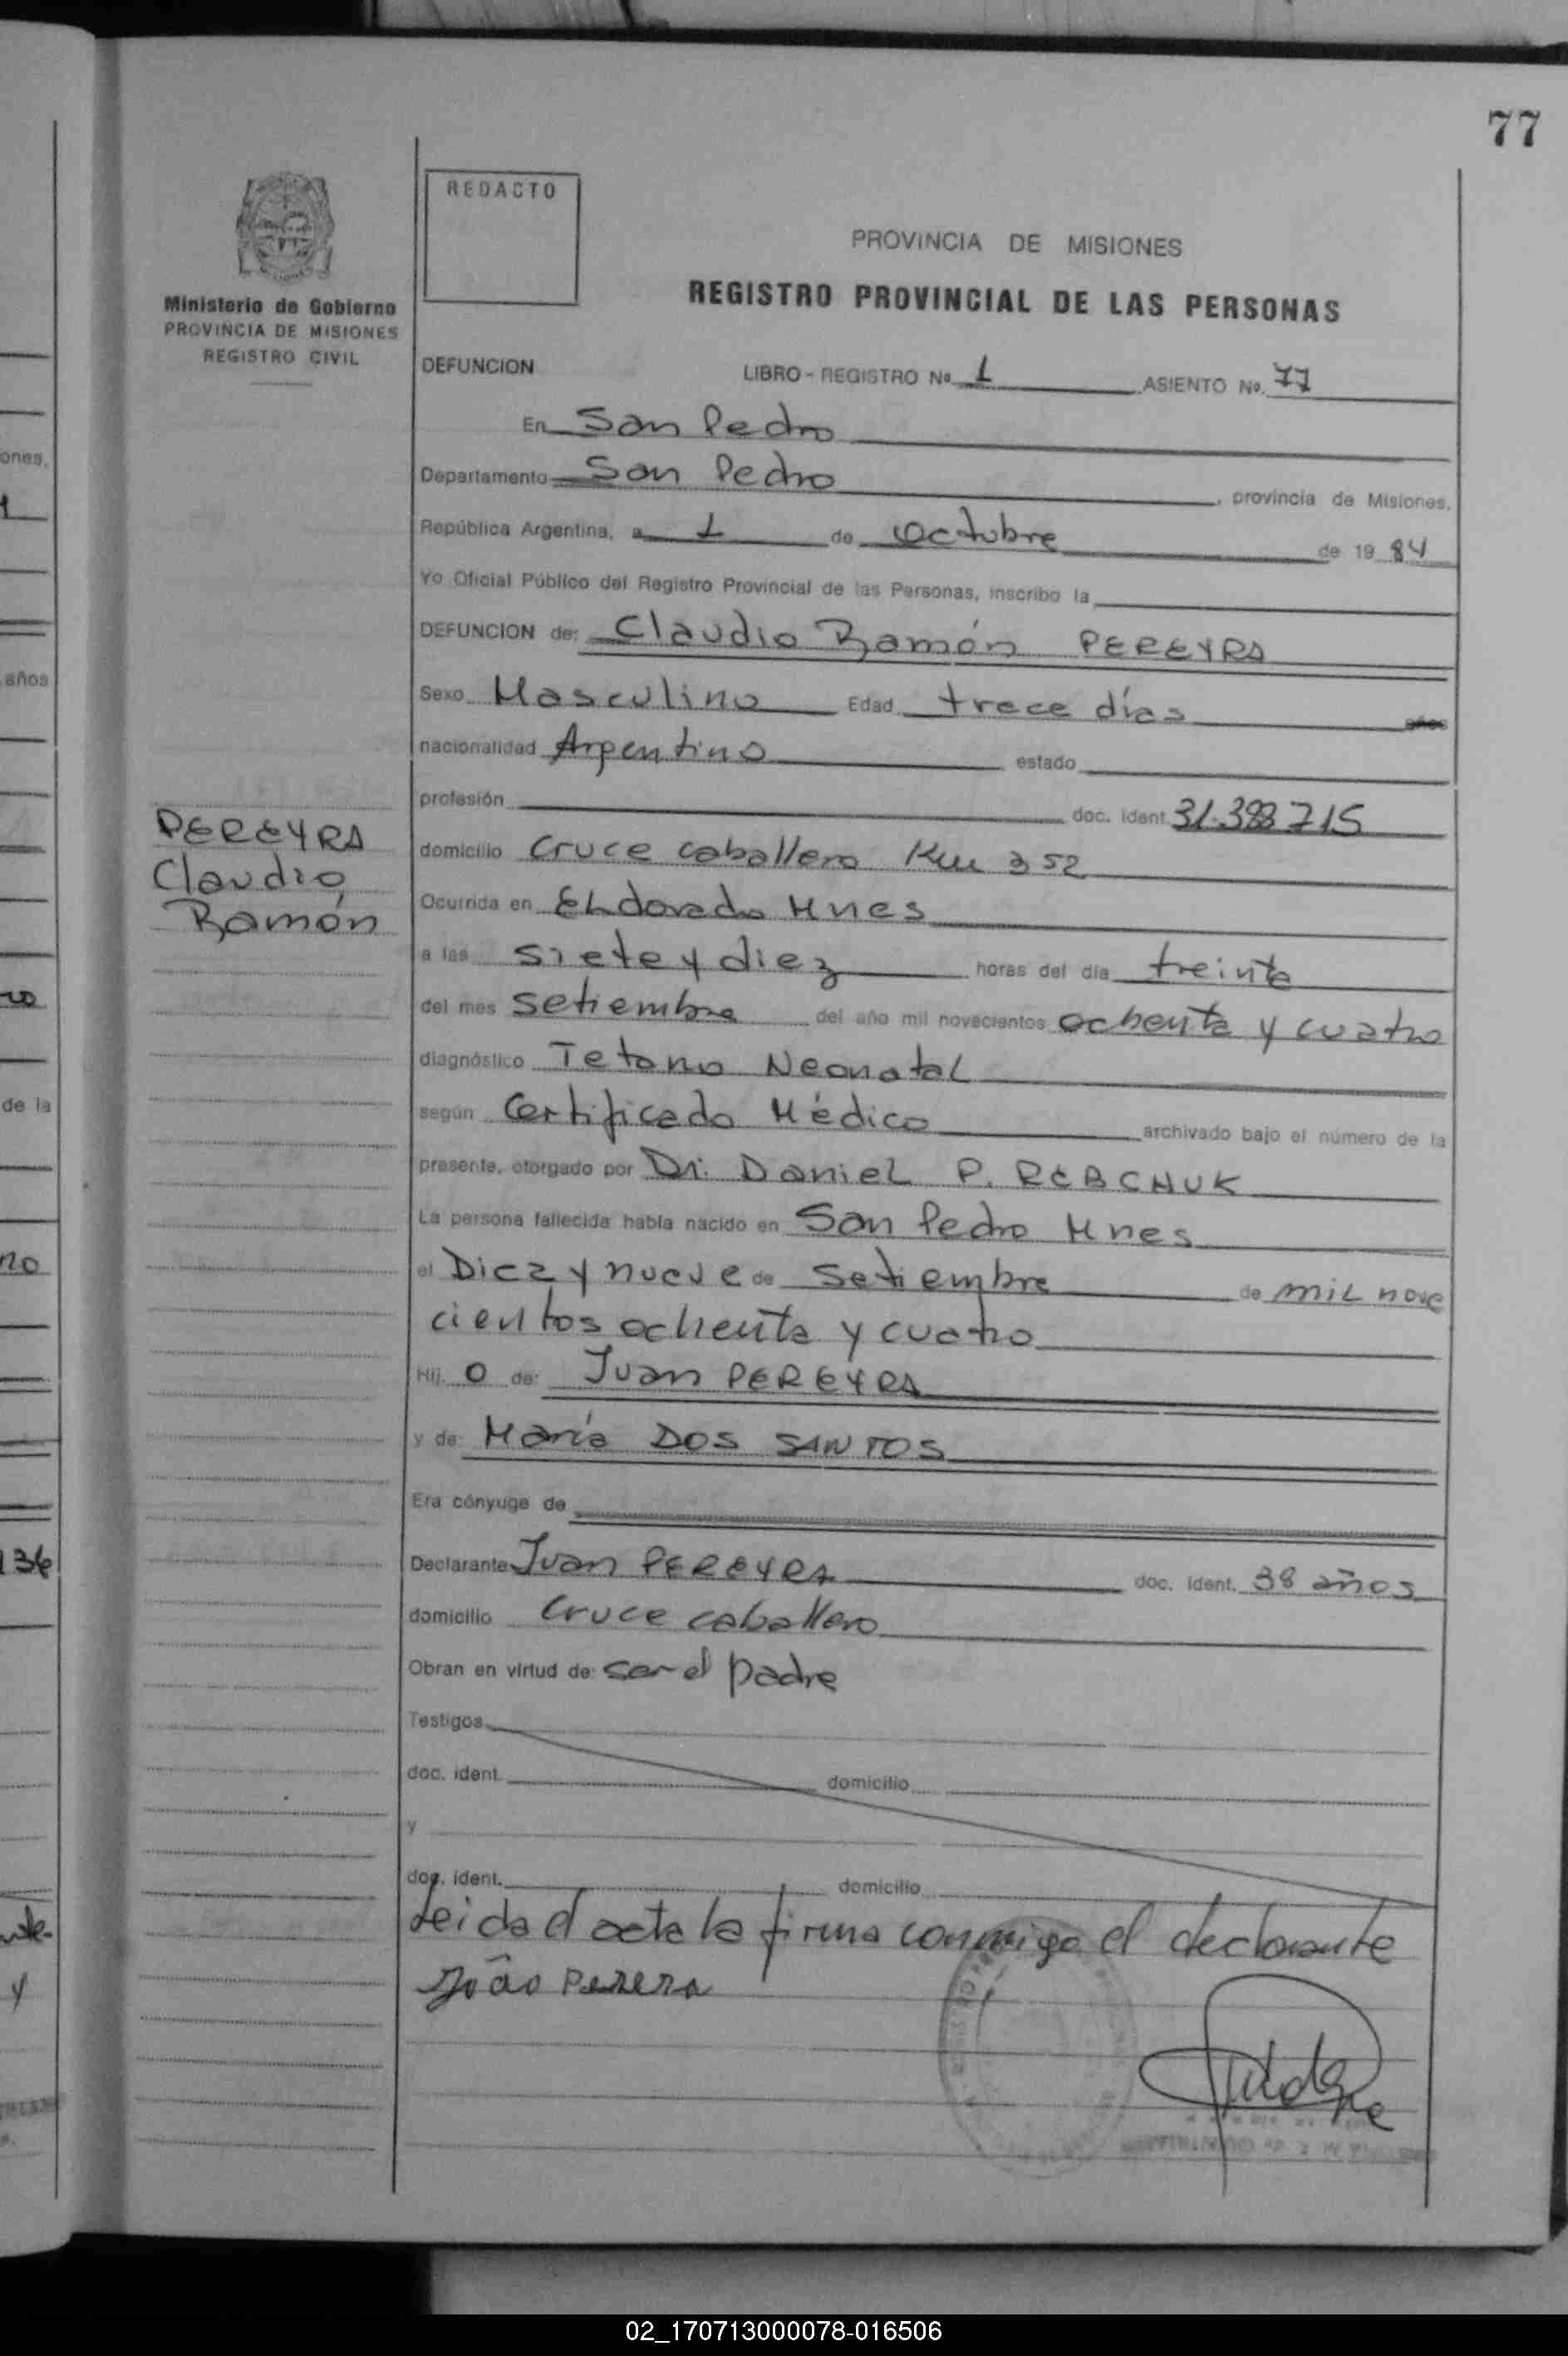 77
REDACTO
PROVINCIA DE MISIONES
REGISTRO PROVINCIAL DE LAS PERSONAS
Ministerio de Gobierno
PROVINCIA DE MISIONES
REGISTRO CIVIL
DEFUNCION LIBRO - REGISTRO No. 1 ASIENTO No. 77
En San Pedro
Departamento San Pedro, provincia de Misiones,
República Argentina, a 1 de octubre de 1984
Yo Oficial Público del Registro Provincial de las Personas, inscribo la
DEFUNCION de: Claudio Ramón PEREYRA
Sexo Masculino Edad trece días años
nacionalidad Argentino estado
profesión doc. ident. 31.388.715
domicilio Cruce caballero Km 352
Ocurrida en ELdorado Mnes
a las siete y diez horas del día treinta
del mes setiembre del año mil novecientos ochenta y cuatro
diagnóstico Tetano Neonatal
según Certificado Médico archivado bajo el número de la
presente, otorgado por Dr. Daniel P. REBCHUK
La persona fallecida había nacido en San Pedro Mnes
el Diez y nueve de setiembre de mil nove
cientos ochenta y cuatro
Hij o de: Juan PEREYRA
y de María DOS SANTOS
Era cónyuge de
Declarante Juan PEREYRA doc. ident. 38 años
domicilio Cruce caballero
Obran en virtud de: ser el padre
Testigos
doc. ident. domicilio
y
doc. ident. domicilio
Leida el acta la firma conmigo el declarante
João Perera
PEREYRA
Claudio
Ramón
ones,
1
años
ro
de la
no
136
y
02_170713000078-016506